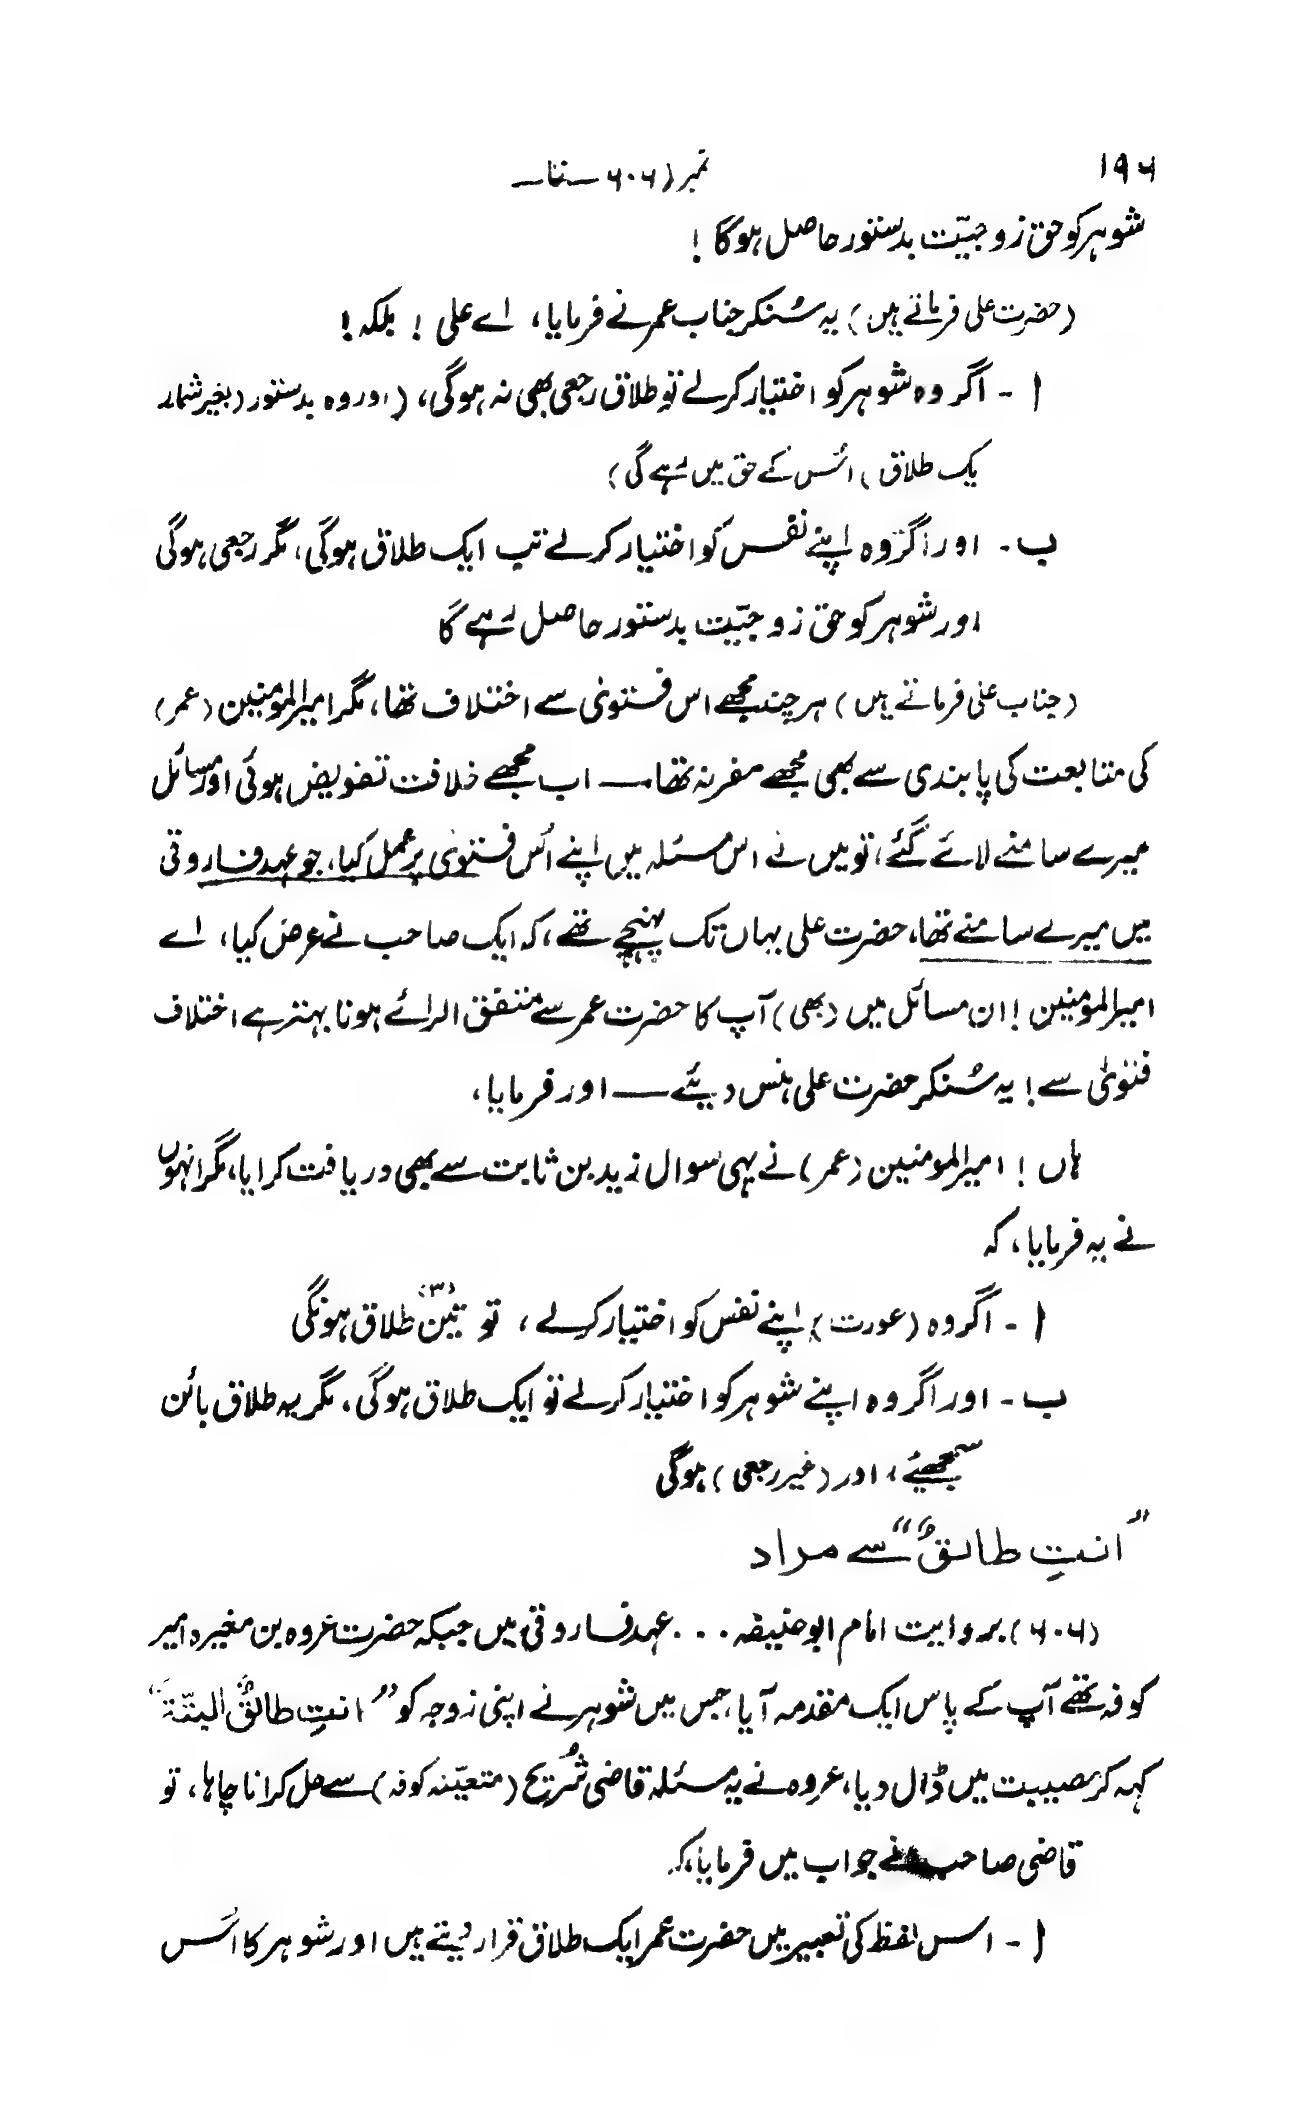 ۱۹۶
نمبر (۶۰۶ — تا —
شوہر کو حق زوجیّت بدستور حاصل ہوگا !
(حضرت علی فرماتے ہیں) یہ سُنکر جناب عمر نے فرمایا، اے علی ! بلکہ !
ا - اگر وہ شوہر کو اختیار کرلے تو طلاق رجعی بھی نہ ہوگی، (اور وہ بدستور (بغیر شمار
یک طلاق) اُس کے حق میں رہے گی)
ب - اور اگر وہ اپنے نفس کو اختیار کرلے تب ایک طلاق ہوگی، مگر رجعی ہوگی
اور شوہر کو حق زوجیّت بدستور حاصل رہے گا
(جناب علی فرماتے ہیں) ہر چند مجھے اس فتویٰ سے اختلاف تھا، مگر امیر المومنین (عمر)
کی متابعت کی پابندی سے بھی مجھے مفر نہ تھا — اب مجھے خلافت تفویض ہوئی اور مسائل
میرے سامنے لائے گئے، تو میں نے اس مسئلہ میں اپنے اُس فتویٰ پر عمل کیا، جو عہد فاروقی
میں میرے سامنے تھا، حضرت علی یہاں تک پہنچے تھے، کہ ایک صاحب نے عرض کیا، اے
امیر المومنین ! ان مسائل میں (بھی) آپ کا حضرت عمر سے متفق الرائے ہونا بہتر ہے اختلاف
فتویٰ سے ! یہ سُنکر حضرت علی ہنس دیئے — اور فرمایا،
ہاں ! امیر المومنین (عمر) نے یہی سوال زید بن ثابت سے بھی دریافت کرایا، مگر انہوں
نے یہ فرمایا، کہ
ا - اگر وہ (عورت) اپنے نفس کو اختیار کرلے، تو تین (۳) طلاق ہونگی
ب - اور اگر وہ اپنے شوہر کو اختیار کرلے تو ایک طلاق ہوگی، مگر یہ طلاق بائن
سمجھیئے، اور (غیر رجعی) ہوگی
"انتِ طالقٌ" سے مراد
(۶۰۶) بروایت امام ابوحنیفہ ... عہد فاروقی میں جبکہ حضرت عروہ بن مغیرہ امیر
کوفہ تھے آپ کے پاس ایک مقدمہ آیا، جس میں شوہر نے اپنی زوجہ کو "انتِ طالقٌ البتّۃَ"
کہہ کر مصیبت میں ڈال دیا، عروہ نے یہ مسئلہ قاضی شُریح (متعیّنہ کوفہ) سے حل کرانا چاہا، تو
قاضی صاحب نے جواب میں فرمایا، کہ
ا - اس لفظ کی تعبیر میں حضرت عمر ایک طلاق قرار دیتے ہیں اور شوہر کا اُس